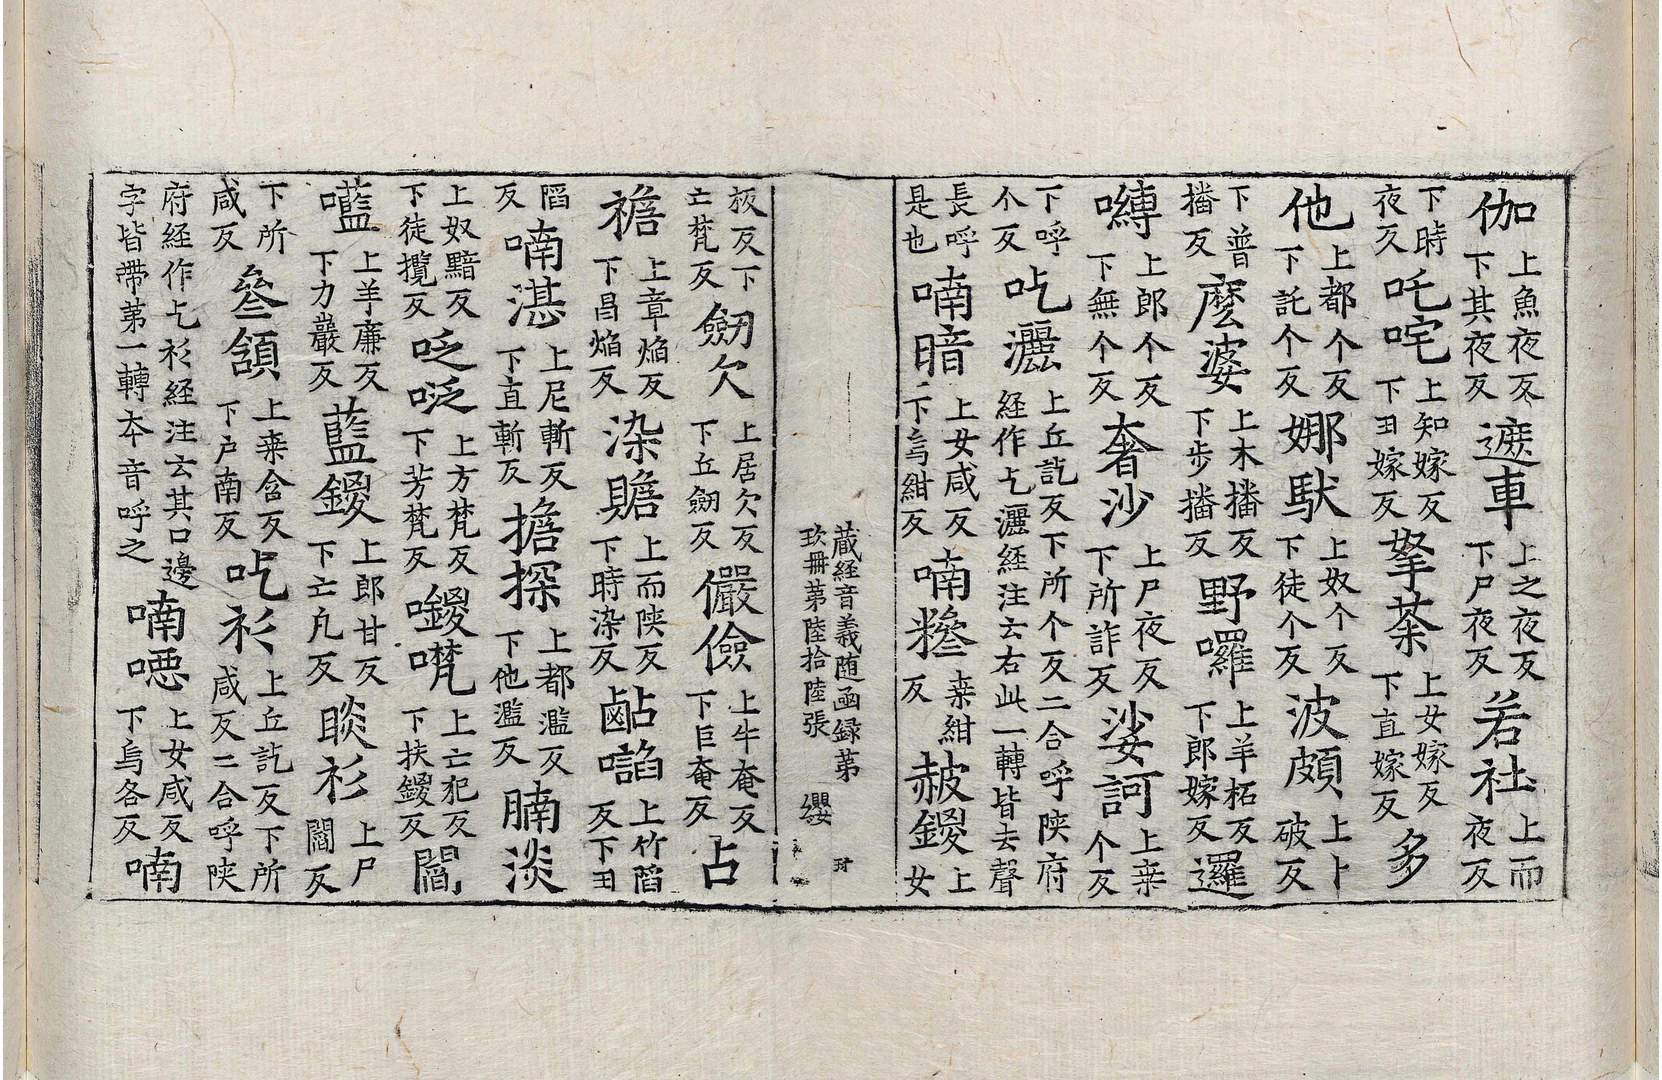 伽上魚夜反下其夜反遮車上之夜反下尸夜反若社上而夜反
下時夜反吒咤上知嫁反下丑嫁反拏荼上女嫁反下直嫁反多
他上都个反下託个反娜馱上奴个反下徒个反波頗上卜破反
下普播反麽婆上木播反下步播反野囉上羊柘反下郎嫁反邏
嚩上郎个反下無个反奢沙上尸夜反下所詐反娑訶上桒个反
下呼个反吃灑上丘訖反下所个反二合呼陝府經作乞灑經注云右此一轉皆去聲
長呼是也喃暗上女咸反下烏紺反喃糝桒紺反赦鑁上女
藏經音義随函録第玖冊第陸拾陸張 纓
板反下亡梵反劒欠上居欠反下丘劒反儼儉上牛奄反下巨奄反占
襜上章焔反下昌焔反染贍上而陝反下時染反䶢諂上竹䧟反下丑
䧟反喃湛上尼斬反下直斬反擔探上都濫反下他濫反腩淡
上奴黯反下徒攬反㕹唛上方梵反下芳梵反鑁㘕上亡犯反下扶鑁反閻
㘕上羊廉反下力嚴反藍鑁上郎甘反下亡凡反睒衫上尸閻反
下所咸反叄頷上桒含反下戶南反吃衫上丘訖反下所咸反二合呼陝
府經作乞衫經注云其口邊字皆帶苐一轉本音呼之喃噁上女咸反下烏各反喃